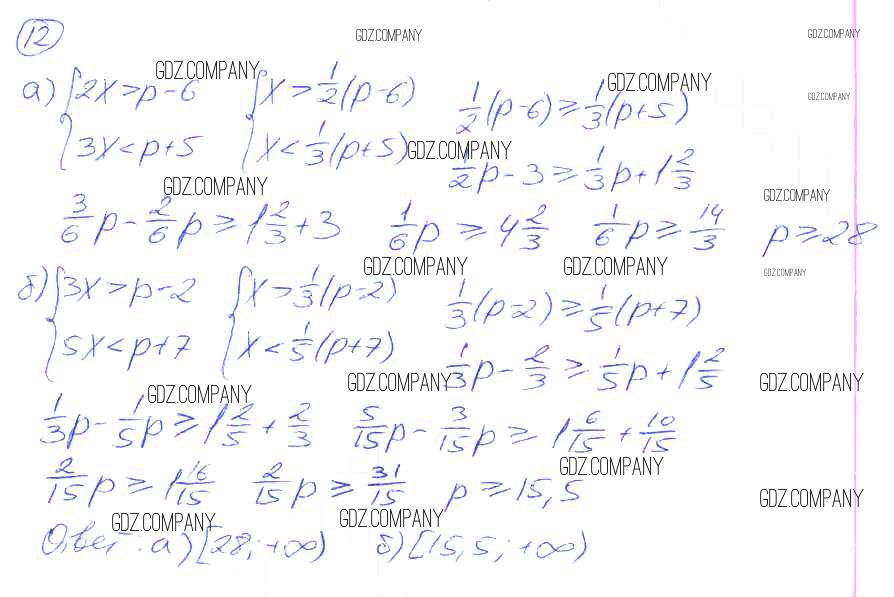 12
GDZ.COMPANY GDZ.COMPANY
а) {2x > p - 6 {x > 1/2(p - 6) 1/2(p - 6) ≥ 1/3(p + 5)
GDZ.COMPANY GDZ.COMPANY GDZ.COMPANY
{3x < p + 5 {x < 1/3(p + 5) GDZ.COMPANY
1/2p - 3 ≥ 1/3p + 1 2/3
GDZ.COMPANY GDZ.COMPANY
3/6p - 2/6p ≥ 1 2/3 + 3 1/6p ≥ 4 2/3 1/6p ≥ 14/3 p ≥ 28
GDZ.COMPANY GDZ.COMPANY GDZ.COMPANY
б) {3x > p - 2 {x > 1/3(p - 2) 1/3(p - 2) ≥ 1/5(p + 7)
{5x < p + 7 {x < 1/5(p + 7)
1/3p - 2/3 ≥ 1/5p + 1 2/5
GDZ.COMPANY GDZ.COMPANY GDZ.COMPANY
1/3p - 1/5p ≥ 1 2/5 + 2/3 5/15p - 3/15p ≥ 1 6/15 + 10/15
GDZ.COMPANY
2/15p ≥ 1 16/15 2/15p ≥ 31/15 p ≥ 15,5
GDZ.COMPANY GDZ.COMPANY GDZ.COMPANY
Ответ: а) [28; +∞) б) [15,5; +∞)